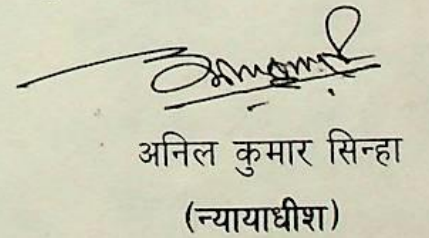 अनिल कुमार सिन्हा
(न्यायाधीश)